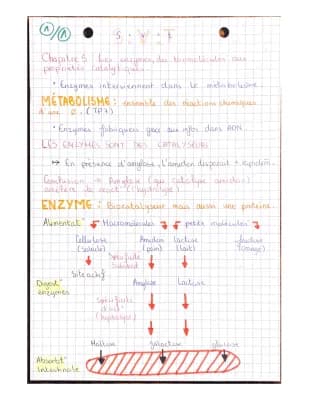 1/1
S.V.T
Chapitre 5 : Les enzymes, des biomolécules aux
propriétés catalytiques.
• Enzymes interviennent dans le métabolisme.
MÉTABOLISME : ensemble des réactions chimiques
d'une (TP7)
• Enzymes fabriquées grâce aux infos dans ADN.
LES ENZYMES SONT DES CATALYSEURS
↦ En présence d'amylase, l'amidon disparaît + rapidem.
Conclusion → Amylase (qui catalyse amidon)
accélère la réact° (l'hydrolyse)
ENZYME : Biocatalyseur mais aussi une protéine.
Alimentat° Macromolécules petite molécules
Cellulose Amidon Lactose
(salade) (pain) (lait) (orange)
Spécificité
Substrat
Site actif
Digest° Amylase Lactase
enzymes
Spécificité
d'act°
(hydrolyse)
Maltose galactose glucose
Absorbt°
Intestinale